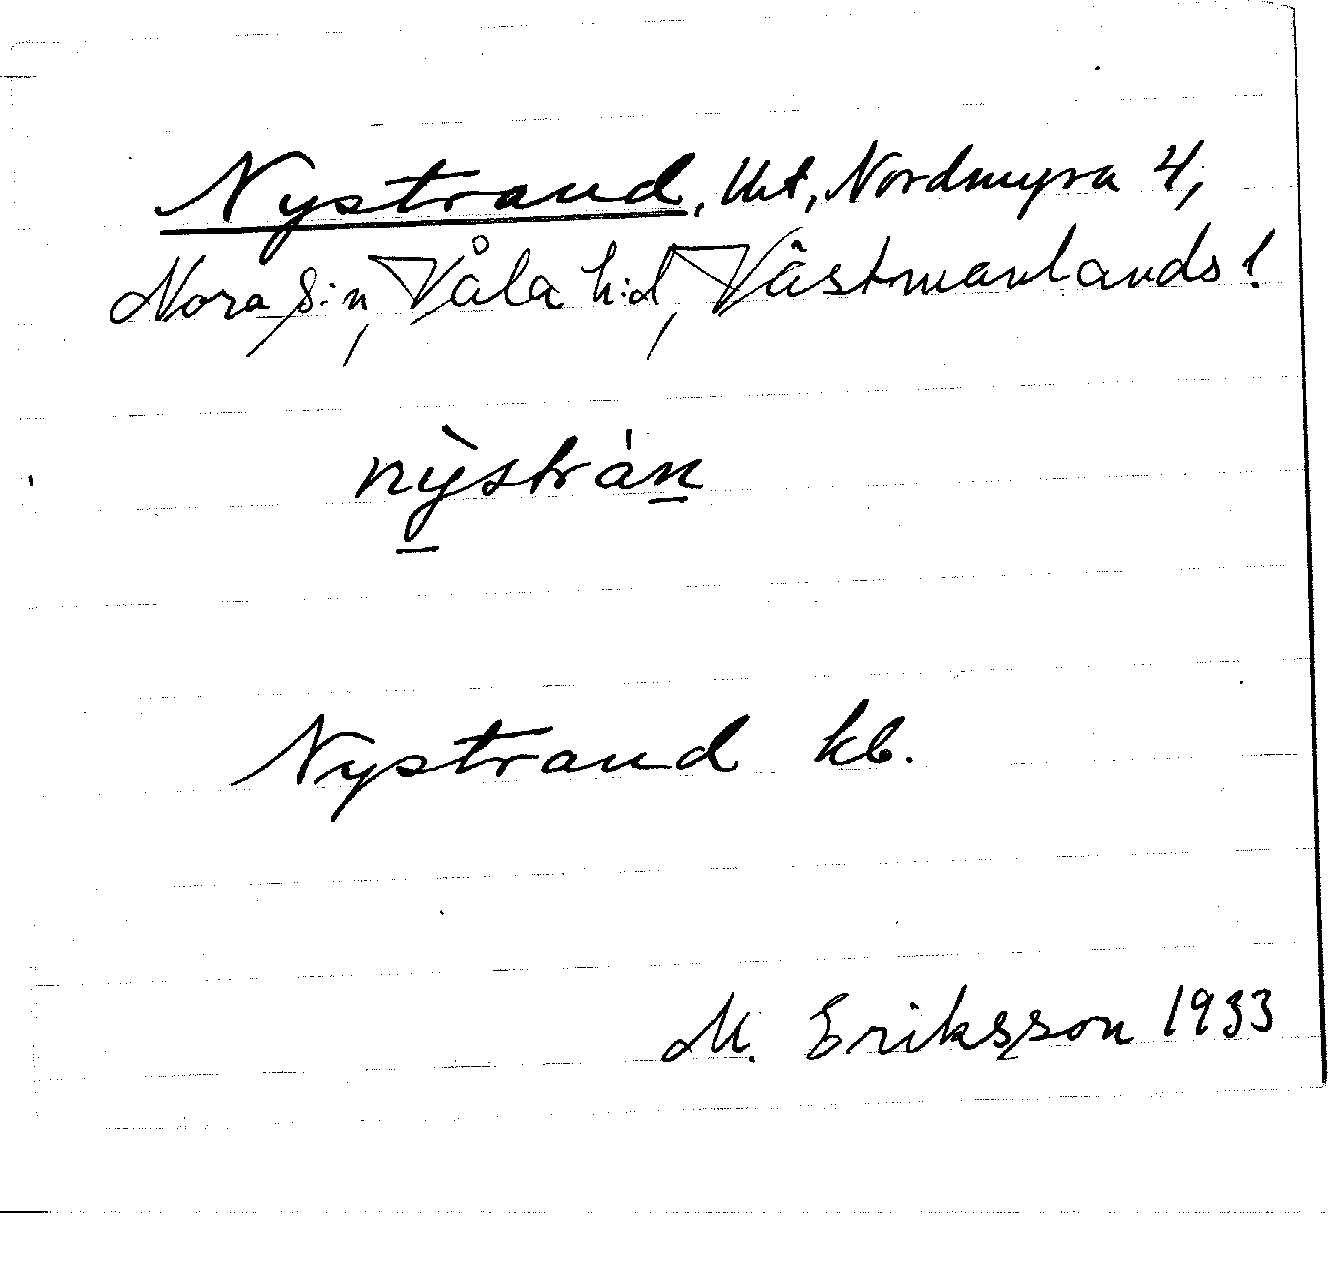 Nystrand, Uvt, Nordmyra 4,
Nora s:n, Våla h:d, Västmanlands l.
nỳstrán
Nystrand kb.
M. Eriksson 1933